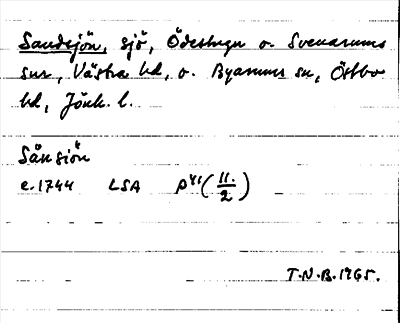 Sandsjön, sjö, Ödestugu o. Svenarums
snr, Västra hd, o. Byarums sn, Östbo
hd, Jönk. l.
Sånsjön
c. 1744 LSA (11/2)
T.N.B. 1965.